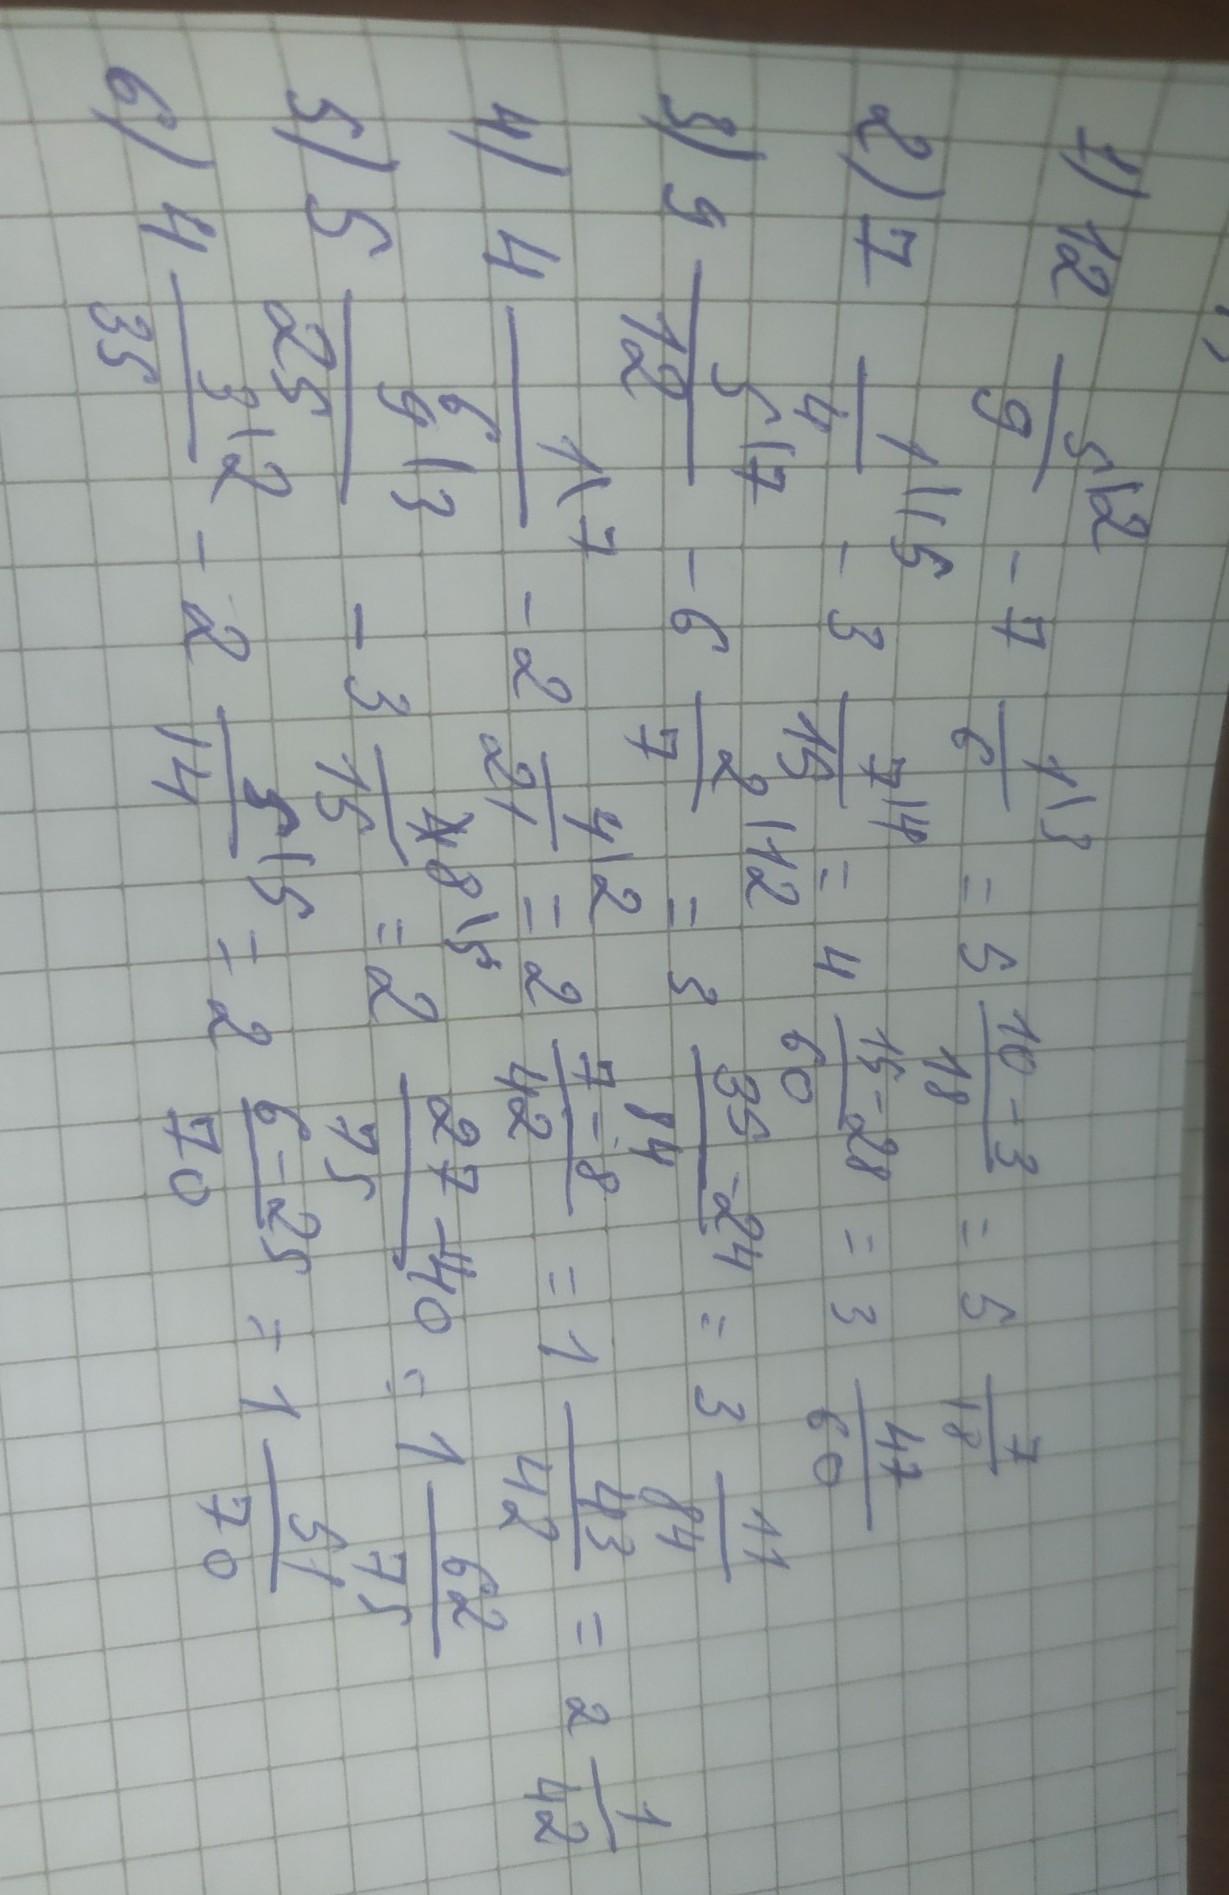 1) 12 5\2/9 - 7 1\3/6 = 5 10-3/18 = 5 7/18
2) 7 1\15/4 - 3 7\4/15 = 4 15-28/60 = 3 47/60
3) 9 5\7/12 - 6 2\12/7 = 3 35-24/84 = 3 11/84
4) 4 1\7/6 - 2 4\2/21 = 2 7-8/42 = 1 43/42 = 2 1/42
5) 5 9\3/25 - 3 8\5/15 = 2 27-40/75 = 1 62/75
6) 4 3\2/35 - 2 5\5/14 = 2 6-25/70 = 1 51/70